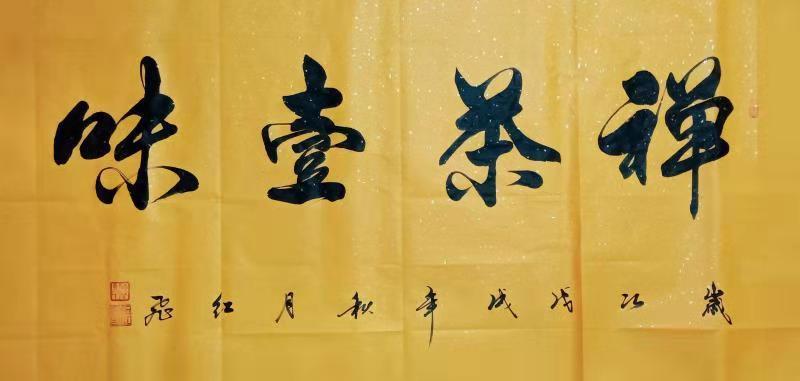 禅茶壹味
歲次戊戌年秋月红飞